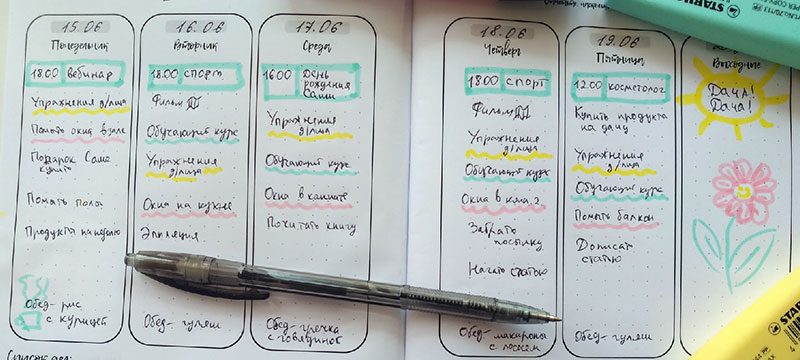 15.06
Понедельник
18.00 вебинар
Упражнения д/лица
Помыть окна в зале
Подарок Саше
купить
Помыть полы
Продукты на неделю
Обед- рис
с курицей
16.06
Вторник
18.00 спорт
Фильм
Обучающий курс
Упражнения
д/лица
Окна на кухне
Эпиляция
Обед- гуляш
17.06
Среда
16.00 День
рождения
Саши
Упражнения
д/лица
Обучающий курс
Окна в комнате
Почитать книгу
Обед- гречка
с говядиной
18.06
Четверг
18.00 спорт
Фильм
Упражнения
д/лица
Обучающий курс
Окна в ком.2
Забрать
посылку
Начать статью
Обед- макароны
с
19.06
Пятница
12.00 косметолог
Купить продукты
на дачу
Упражнения
д/лица
Обучающий курс
Помыть балкон
Дописать
статью
Обед- гуляш
Выходные
Дача!
Дача!
Список дел:
STABILO